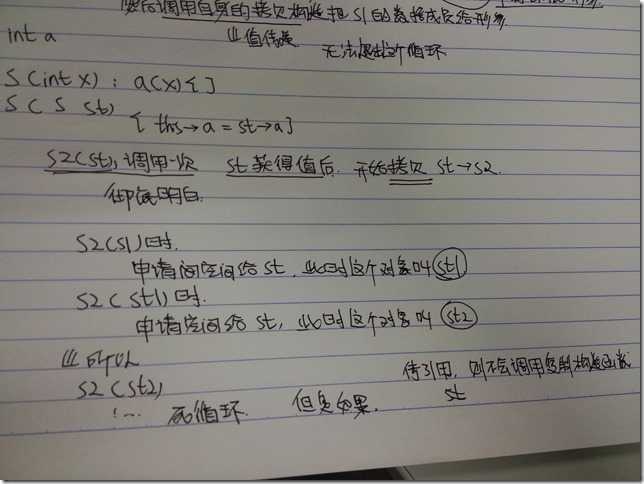 然后调用自身的拷贝构造把S1的数据成员给形参
int a
以值传递
无法退出这个循环
S(int x) : a(x) { }
S(S st)
{ this→a = st→a }
S2(st), 调用一次 st 获得值后. 开始拷贝 st→s2.
彻底明白.
S2(S1)时.
申请空间给 st, 此时这个对象叫 st1
S2(st1)时.
申请空间给 st, 此时这个对象叫 st2
所以
S2(st2),
⋮... 死循环. 但是如果.
传引用, 则不会调用复制构造函数
st